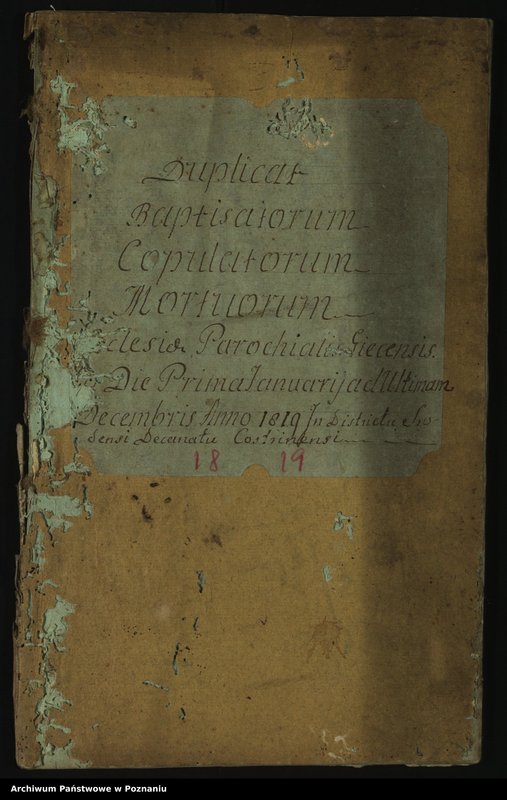 Duplicat
Baptisatorum
Copulatorum
Mortuorum
clesiæ Parochialis Giecensis.
Die Prima Januarij ad Ultimam
Decembris Anno 1819 In Districtu
densi Decanatu Costrinensi
18 19
Archiwum Państwowe w Poznaniu